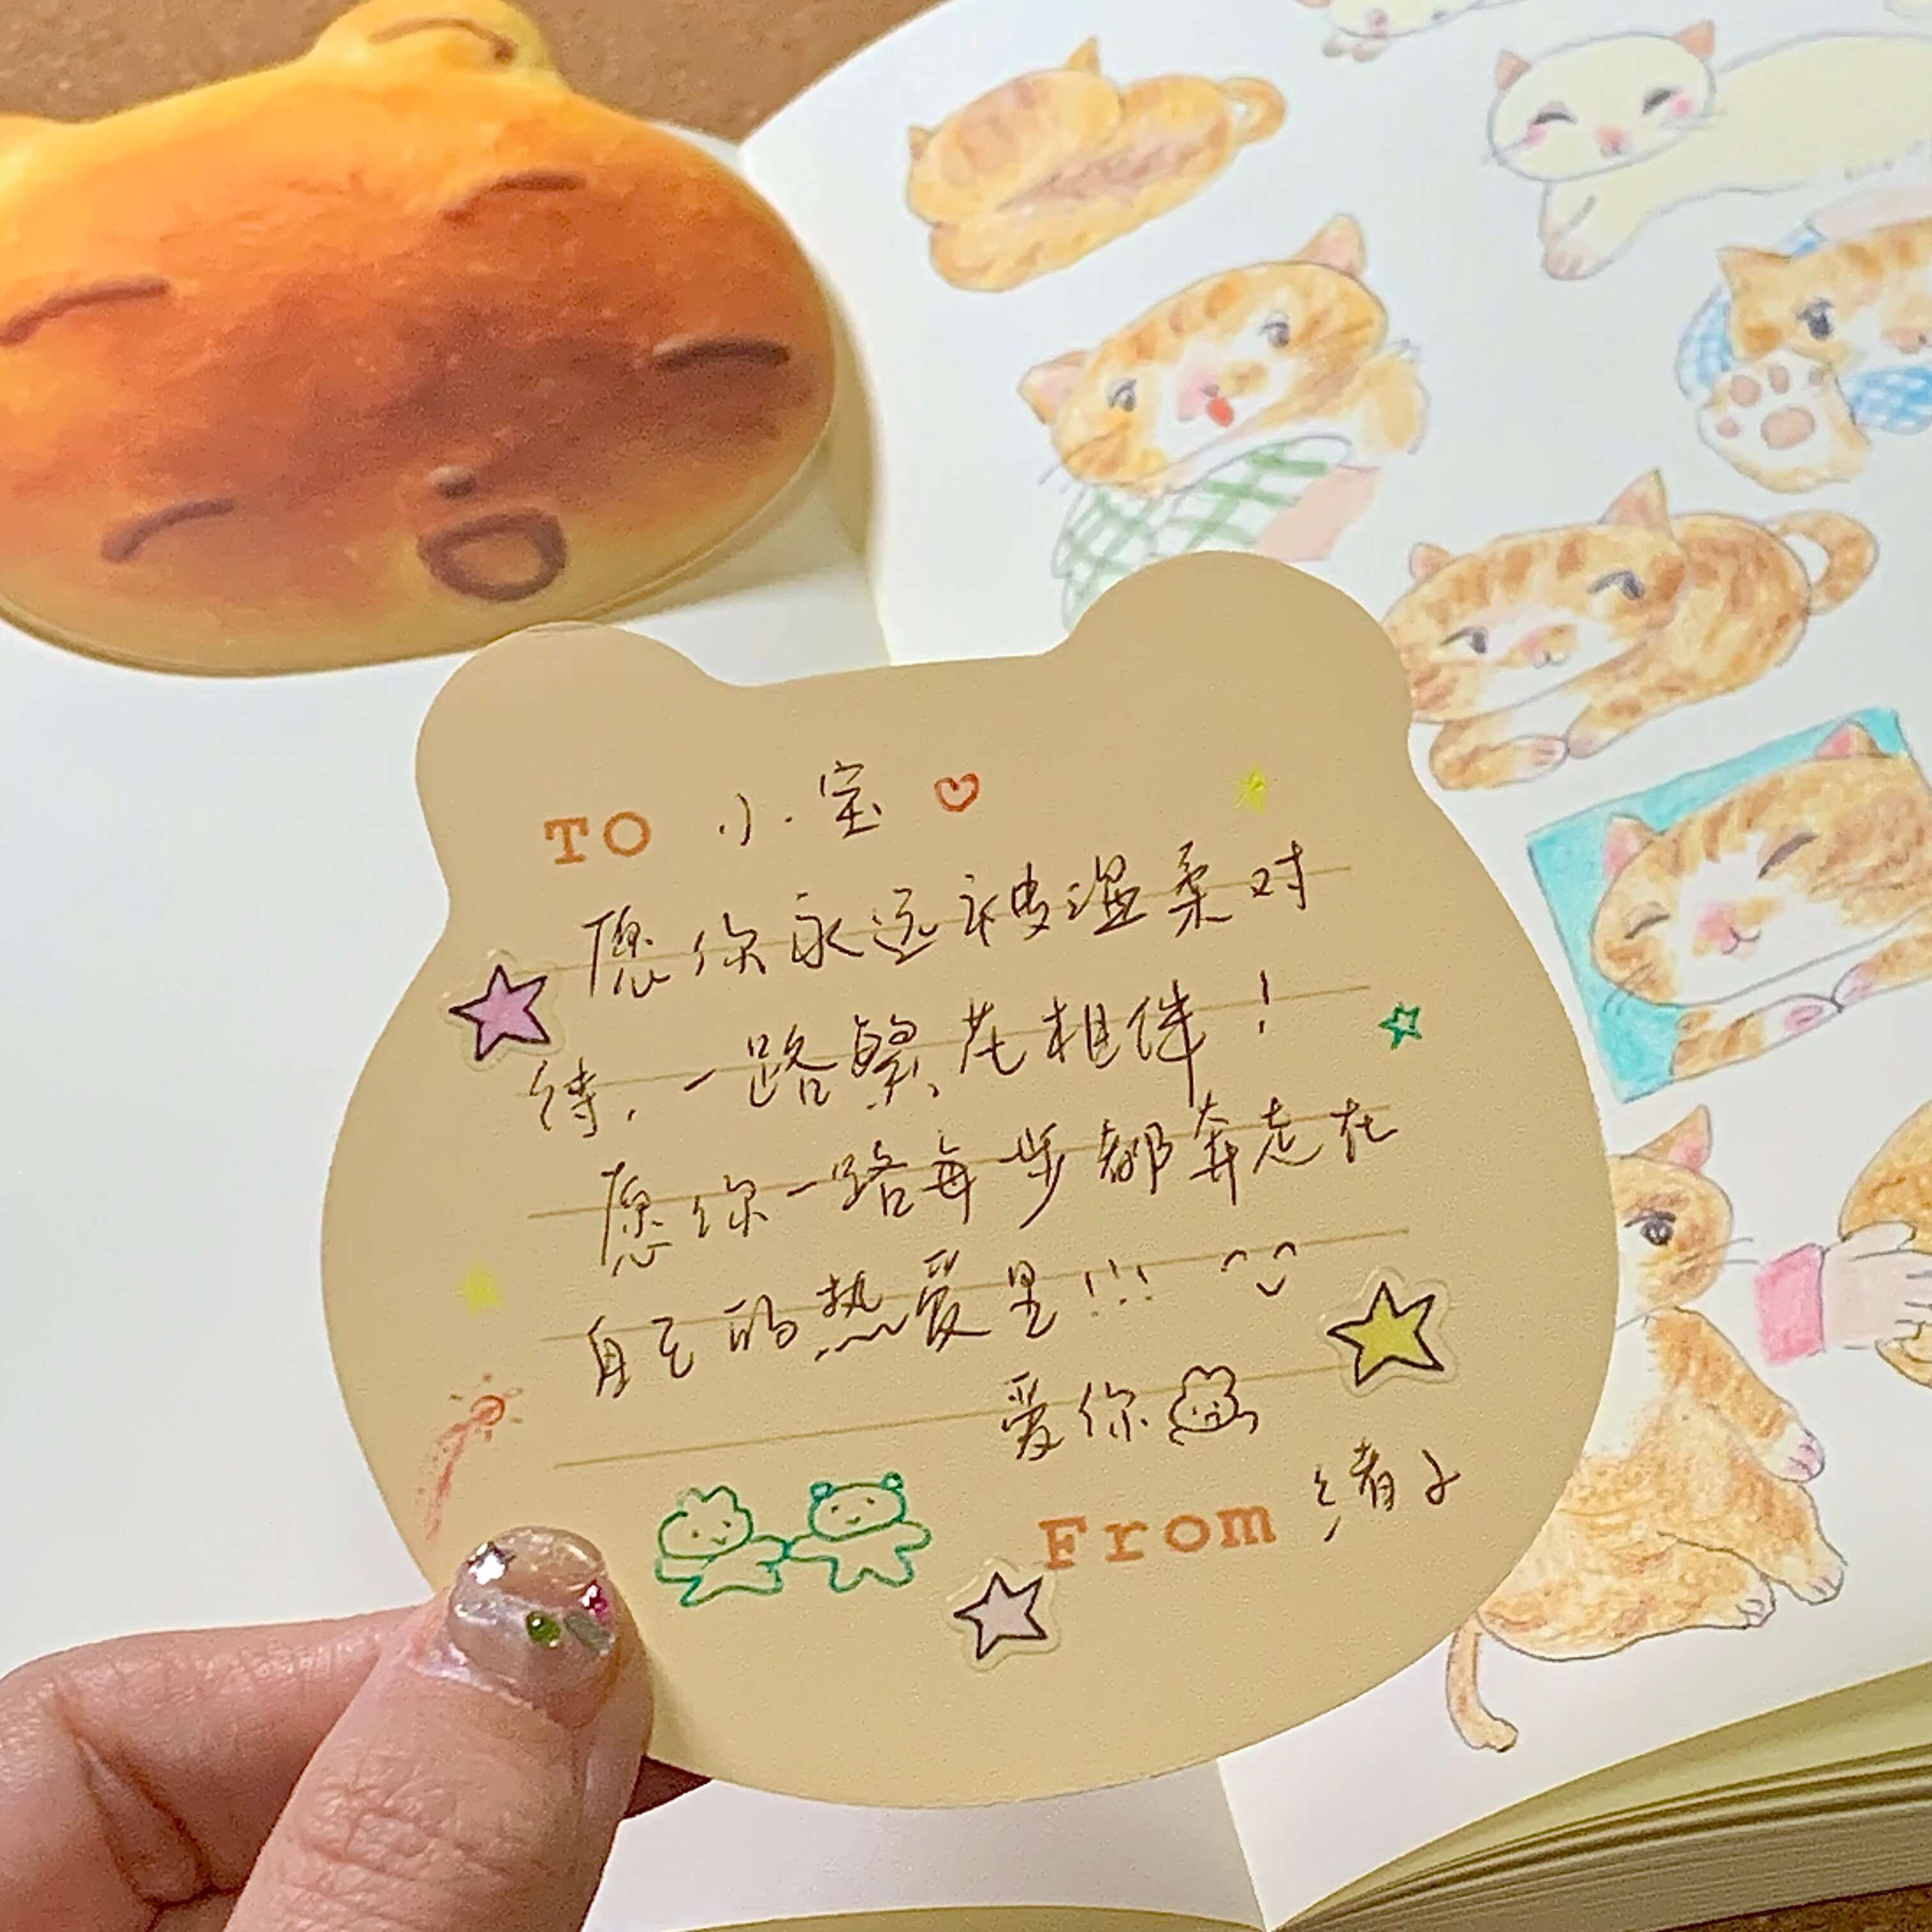 TO 小宝
愿你永远被温柔对
待,一路繁花相伴!
愿你一路每步都奔走在
自己的热爱里!!!
爱你
From 绪子